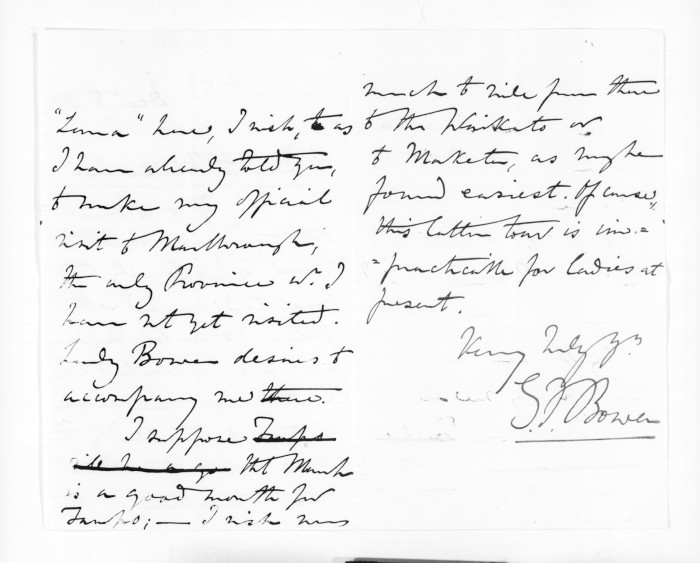 "Luna" here, I wish, to as
I have already told you,
to make my official
visit to Marlborough,
the only Province wh. I
have not yet visited.
Lady Bowen desires to
accompany me there.
I suppose Taupo
that March
is a good month for
Taupo; — I wish very
much to ride from there
to the Waikato or
to Maketu, as might be
found easiest. Of course,
this latter tour is im=
=practicable for Ladies at
present.
Very truly yrs
G. F. Bowen